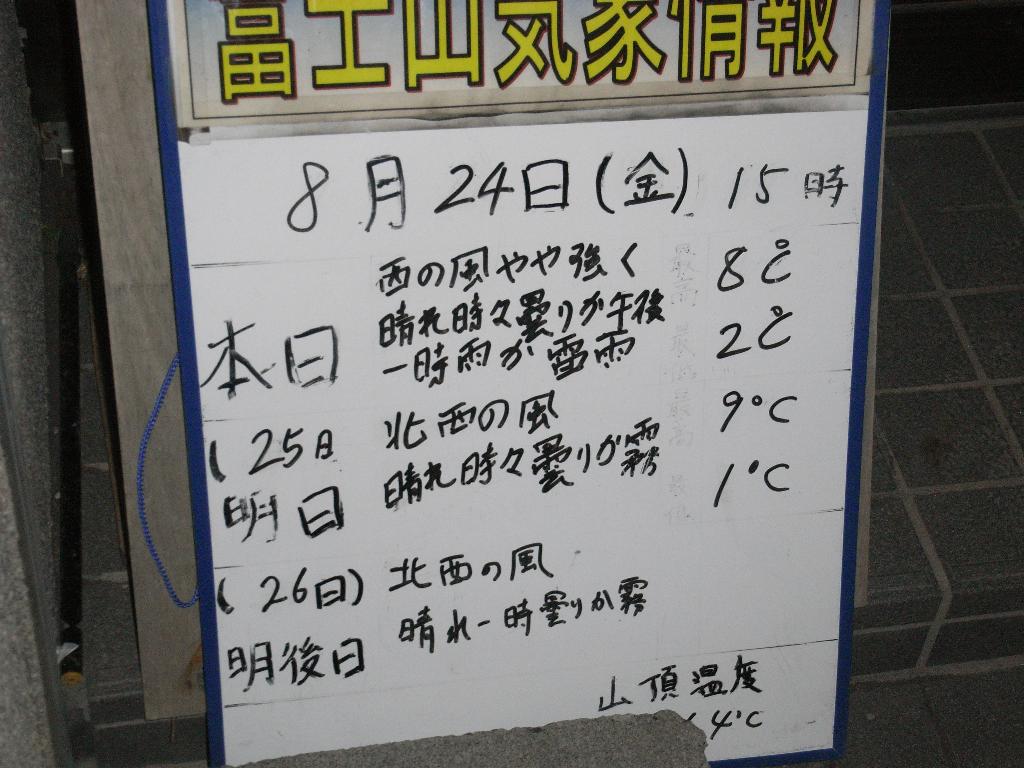 富士山気象情報
8月24日(金) 15時
本日
西の風やや強く
晴れ時々曇りか午後
一時雨か雷雨
最高 8℃
最低 2℃
(25日
明日
北西の風
晴れ時々曇りか霧
最高 9°C
最低 1°C
(26日)
明後日
北西の風
晴れ一時曇りか霧
山頂温度
4°C